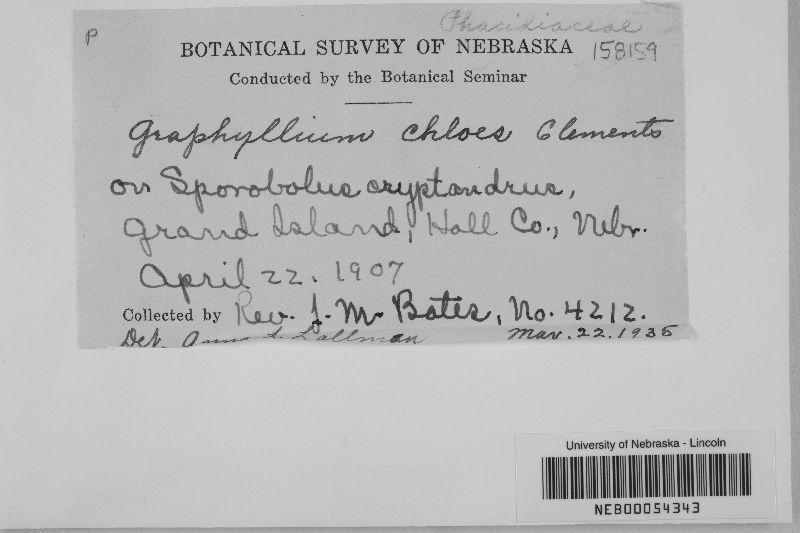 P
Phacidiaceae
BOTANICAL SURVEY OF NEBRASKA
158159
Conducted by the Botanical Seminar
Graphyllium chloes Clements
on Sporobolus cryptandrus,
Grand Island, Hall Co., Nebr.
April 22. 1907
Collected by Rev. J. M. Bates, No. 4212.
Det. Anna L. Dallman Mar. 22. 1935
University of Nebraska - Lincoln
NEB00054343